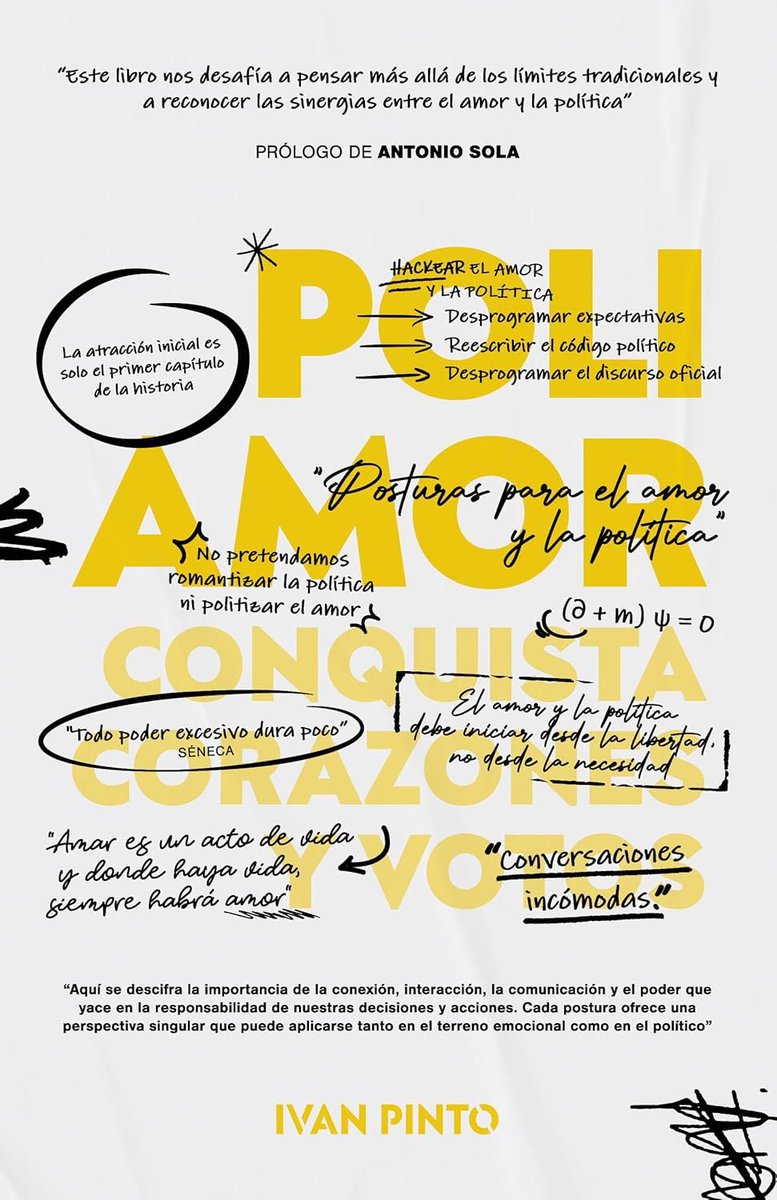 “Este libro nos desafía a pensar más allá de los límites tradicionales y
a reconocer las sinergias entre el amor y la política”
PRÓLOGO DE ANTONIO SOLA
POLI
HACKEAR EL AMOR
Y LA POLÍTICA
Desprogramar expectativas
Reescribir el código político
Desprogramar el discurso oficial
La atracción inicial es
solo el primer capítulo
de la historia
AMOR
“Posturas para el amor
y la política”
No pretendamos
romantizar la política
ni politizar el amor
(∂ + m) ψ = 0
CONQUISTA
CORAZONES
Y VOTOS
"Todo poder excesivo dura poco”
SÉNECA
El amor y la política
debe iniciar desde la libertad,
no desde la necesidad
"Amar es un acto de vida
y donde haya vida,
siempre habrá amor"
“Conversaciones
incómodas.”
“Aquí se descifra la importancia de la conexión, interacción, la comunicación y el poder que
yace en la responsabilidad de nuestras decisiones y acciones. Cada postura ofrece una
perspectiva singular que puede aplicarse tanto en el terreno emocional como en el político”
IVAN PINTO